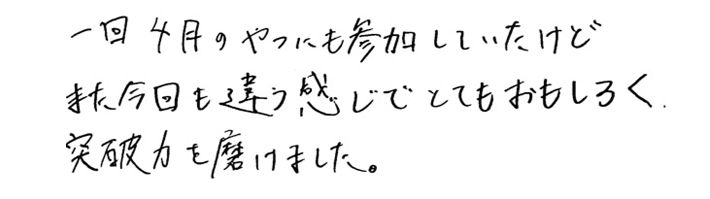 一回4月のやつにも参加していたけど
また今回も違う感じでとてもおもしろく、
突破力を磨けました。